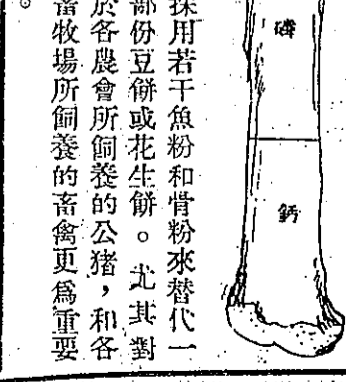 磷
鈣
採用若干魚粉和骨粉來替代一
部份豆餅或花生餅。尤其對
於各農會所飼養的公猪，和各
畜牧場所飼養的畜禽更爲重要
。